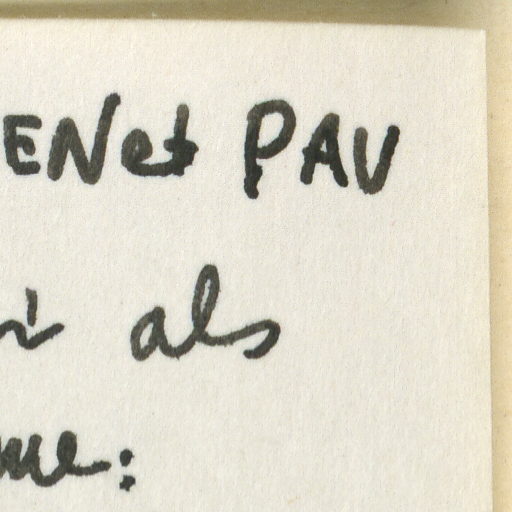 ENet PAU
i als
me: